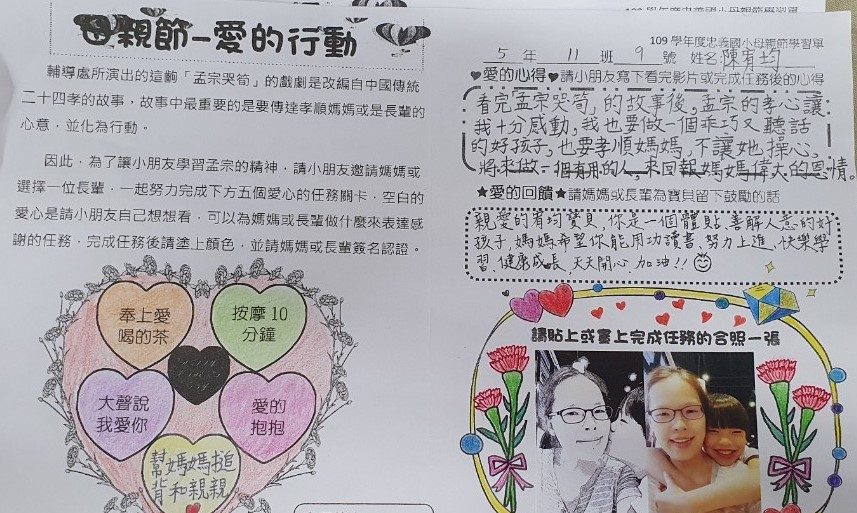 母親節–愛的行動
輔導處所演出的這齣「孟宗哭筍」的戲劇是改編自中國傳統
二十四孝的故事，故事中最重要的是要傳達孝順媽媽或是長輩的
心意，並化為行動。
因此，為了讓小朋友學習孟宗的精神，請小朋友邀請媽媽或
選擇一位長輩，一起努力完成下方五個愛心的任務關卡，空白的
愛心是請小朋友自己想想看，可以為媽媽或長輩做什麼來表達感
謝的任務，完成任務後請塗上顏色，並請媽媽或長輩簽名認證。
奉上愛
喝的茶
按摩 10
分鐘
大聲說
我愛你
愛的
抱抱
幫媽媽搥
背和親親
109 學年度忠義國小母親節學習單
109 學年度忠義國小母親節學習單
5 年 11 班 9 號 姓名陳宥均
♥愛的心得♥請小朋友寫下看完影片或完成任務後的心得
看完「孟宗哭筍」的故事後,孟宗的孝心讓
我十分感動,我也要做一個乖巧又聽話
的好孩子,也要孝順媽媽,不讓她操心,
將來做一個有用的人,來回報媽媽偉大的恩情。
★愛的回饋★請媽媽或長輩為寶貝留下鼓勵的話
親愛的宥均寶貝,你是一個體貼、善解人意的好
孩子,媽媽希望你能用功讀書、努力上進、快樂學
習、健康成長、天天開心、加油!!
請貼上或畫上完成任務的合照一張